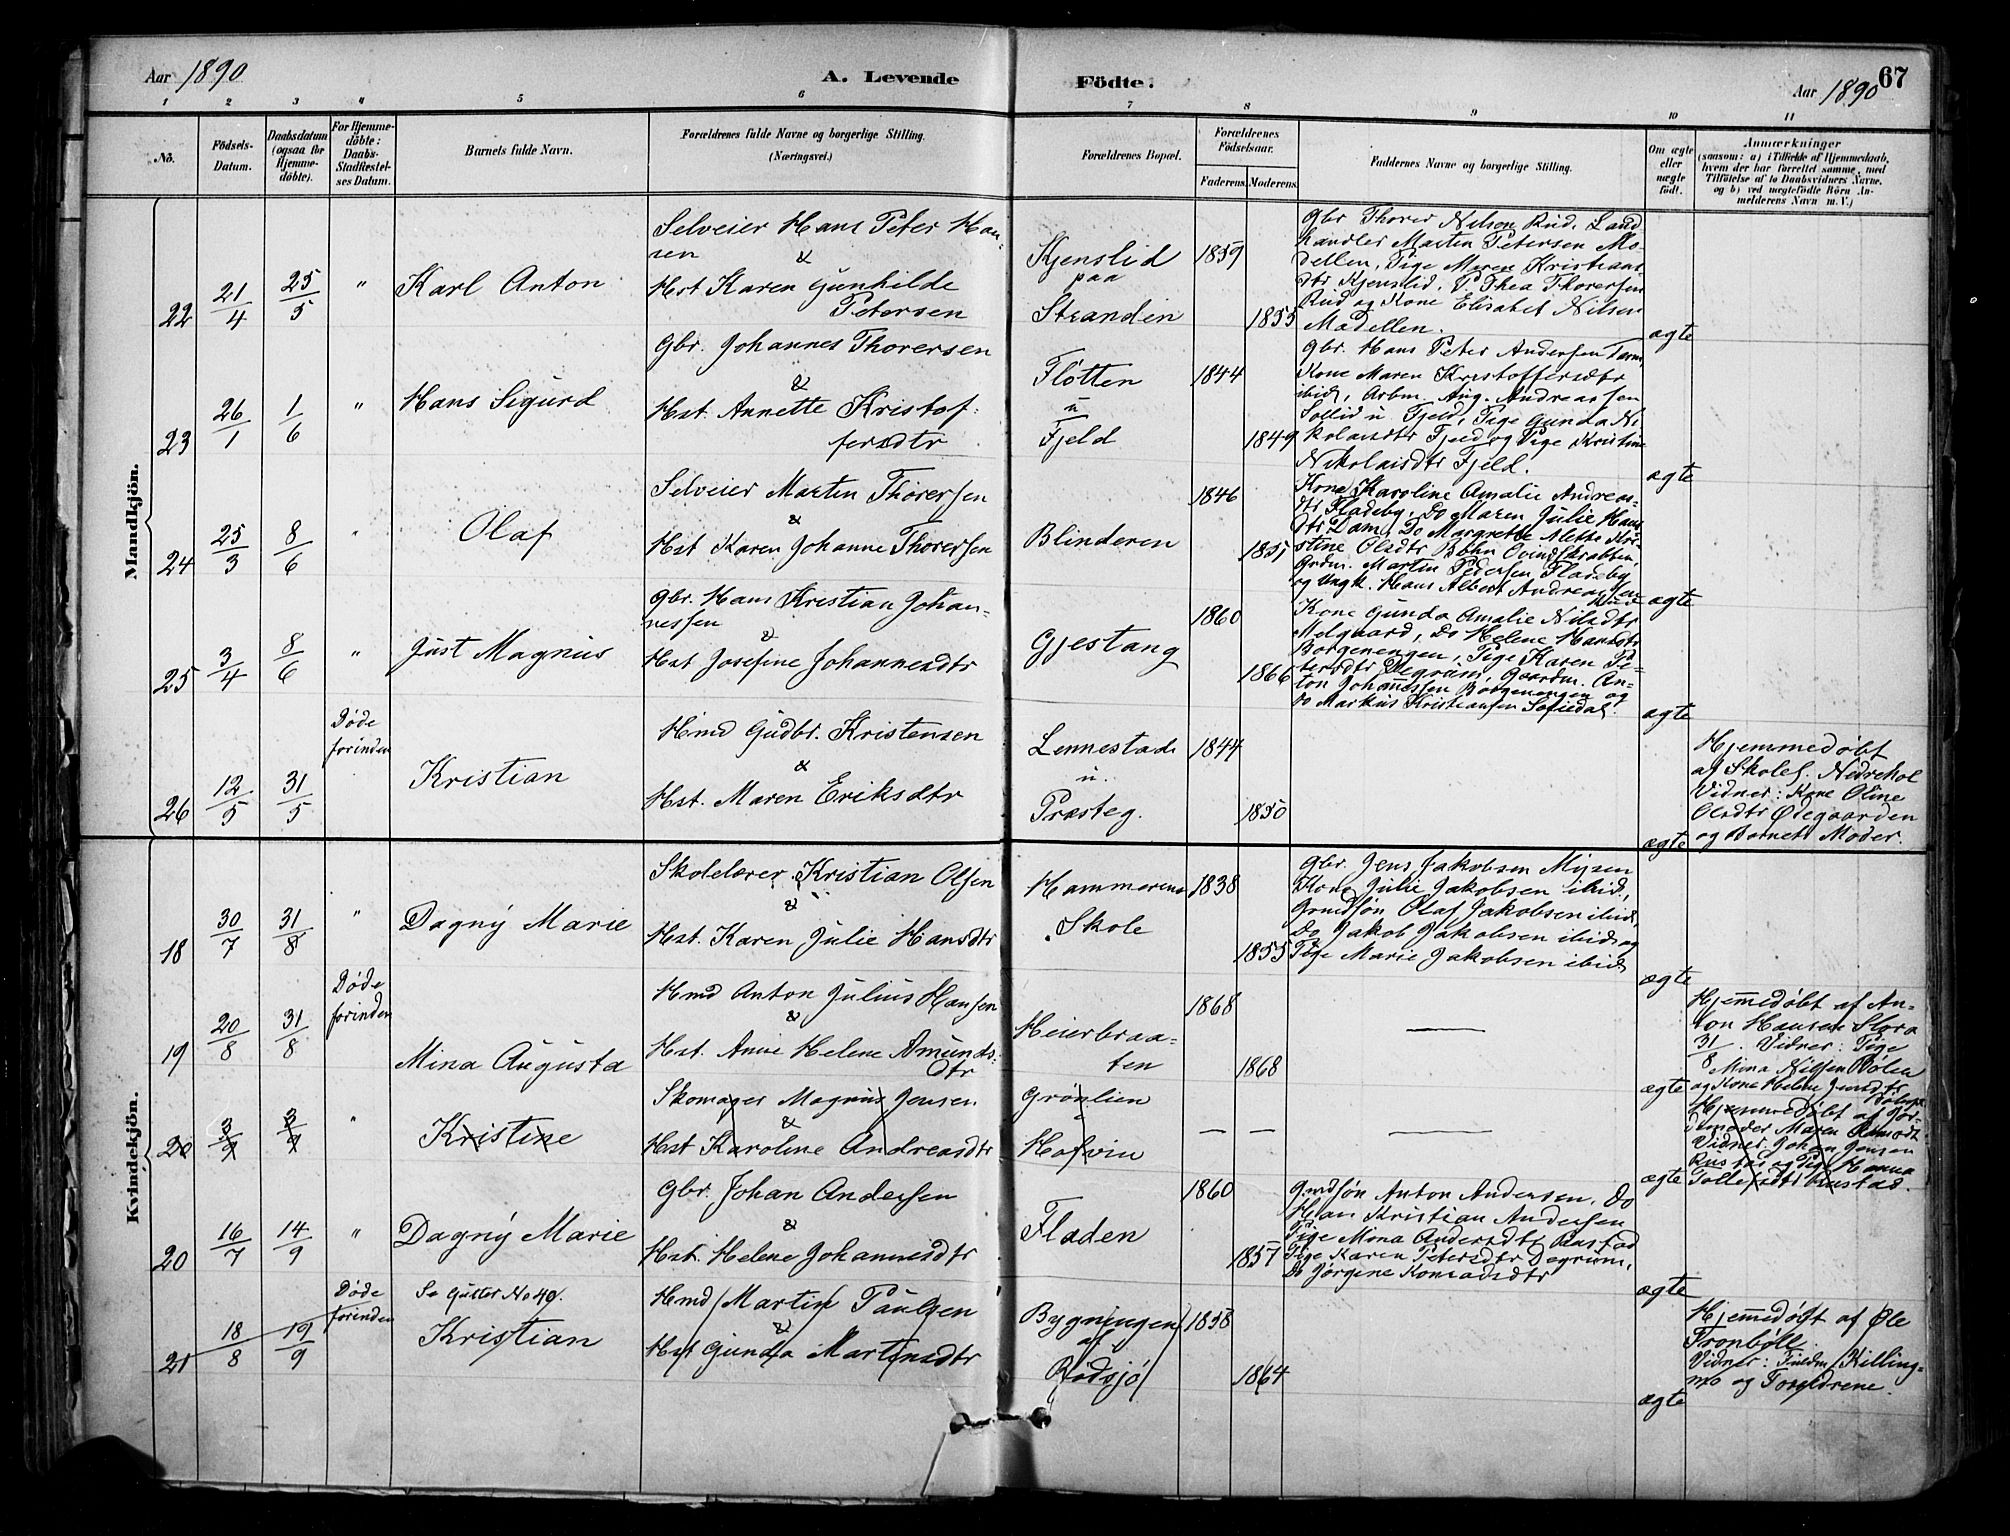 Aar 1890
A. Levende
Födte.
Aar 1890
67
1 2 3 4 5 6 7 8 9 10 11
No.
Födsels-
Datum.
Daabsdatum
(ogsaa for
Hjemme-
döbte).
For Hjemme-
döbte:
Daabs-
Stadfæstel-
ses Datum.
Barnets fulde Navn.
Forældrenes fulde Navne og borgerlige Stilling.
(Næringsvei.)
Forældrenes Bopæl.
Forældrenes
Födselsaar.
Faderens. Moderens.
Faddernes Navne og borgerlige Stilling.
Om ægte
eller
uægte
födt.
Anmærkninger
(saasom: a) i Tilfælde af Hjemmedaab,
hvem der har forrettet samme, med
Tilföielse af to Daabsvidners Navne,
og b) ved uægtefödte Börn An-
melderens Navn m. V.)
Mandkjön.
22
21/4
25/5
"
Karl Anton
Selveier Hans Peter Han-
sen
&
Hst Karen Gunhilde
Petersen
Kjenslid
paa
Stranden
1859
1855
Gbr Thorer Nilsen Rud, Land
handler Martin Petersen Mo-
dellen, Pige Maren Kristians
dtr Kjenslid, P. Thea Thorersen
Rud og Kone Elisabet Nilsen
Modellen.
ægte
23
26/1
1/6
"
Hans Sigurd
Gbr. Johannes Thorersen
&
Hst. Annette Kristof-
fersdtr
Fløtten
u
Fjeld
1844
1849
Gbr. Hans Peter Andersen
Kone Maren Kristoffersdtr
ibid, Arbm. Aug. Andreassen
Sollid u Fjeld, Pige Gunda Ni
kolaisdtr Fjeld og Pige Kristine
Nikolaisdtr Fjeld.
ægte
24
25/3
8/6
"
Olaf
Selveier Martin Thorersen
&
Hst Karen Johanne Thorersen
Blinderen
1846
1851
Kone Karoline Amalie Andreas-
dtr Fladeby, Do Maren Julie Hans
dtr Dam, Do Margrethe Alette Kri-
stine Olsdtr
Grdm. Martin Pedersen Fladeby
og Ungk. Hans Albert Andreassen
Rud
ægte
25
3/4
8/6
"
Just Magnus
Gbr. Hans Kristian Johan-
nessen
&
Hst Josefine Johannesdtr
Gjestang
1860
1866
Kone Gunda Amalie Nilsdtr
Melgaard, Do Helene Hansdtr
Borgenengen, Pige Karen Pe-
tersdtr Degrum, Gaardm. An-
ton Johannessen Borgenengen og
Do Markus Kristiansen Sofiedal.
ægte
26
12/5
31/5
Døde
forinden
Kristian
Hmd Gudbr. Kristensen
&
Hst. Maren Eriksdtr
Lennestad
u.
Præsteg.
1844
1850
ægte
Hjemmedøbt
af Skolel. Nedrehol
Vidner: Kone Oline
Olsdtr Ødegaarden
og Barnets Moder.
Kvindekjön.
18
30/7
31/8
"
Dagny Marie
Skolelærer Kristian Olsen
&
Hst. Karen Julie Hansdtr
Hammerens
Skole
1838
1855
Gbr. Jens Jakobsen Mysen
Kone Julie Jakobsen ibid,
Grmdsøn Olaf Jakobsen ibid,
Do Jakob Jakobsen ibid og
Pige Marie Jakobsen ibid
ægte
19
20/8
31/8
Døde
forinden
Mina Augusta
Hmd Anton Julius Hansen
&
Hst. Anne Helene Amunds-
dtr
Heierbraa-
ten
1868
1868
—
ægte
Hjemmedøbt af An-
ton Hansen Slora
31/8. Vidner: Pige
Mina Nilsen Bølen
og Kone Helene Jensdtr
20
3/9
3/9
"
Kristine
Skomager Magnus Jensen
&
Hst Karoline Andreasdtr
Grønlien
Hofvin
— —
—
ægte
Hjemmedøbt af Jor-
demoder Maren
Vidner Johan Jensen
Rustad og Pige Hanna
Tollefsdtr Rustad.
20
16/7
14/9
"
Dagny Marie
Gbr. Johan Andersen
&
Hst. Helene Johannesdtr
Fladen
1860
1857
Grmdsøn Anton Andersen, Do
Hans Kristian Andersen
Pige Mina Andersdtr Rustad
Pige Karen Petersdtr Degrum,
Do Jørgine Konradsdtr
ægte
21
18/8
19/9
Døde
forinden
Se Gutter No 40.
Kristian
Hmd Martin Paulsen
&
Hst Gunda Martinsdtr
Bygningen
af
Rødsjø
1858
1864
ægte
Hjemmedøbt af Ole
Tronbøl
Vidner: Killing-
mo og Forældrene.